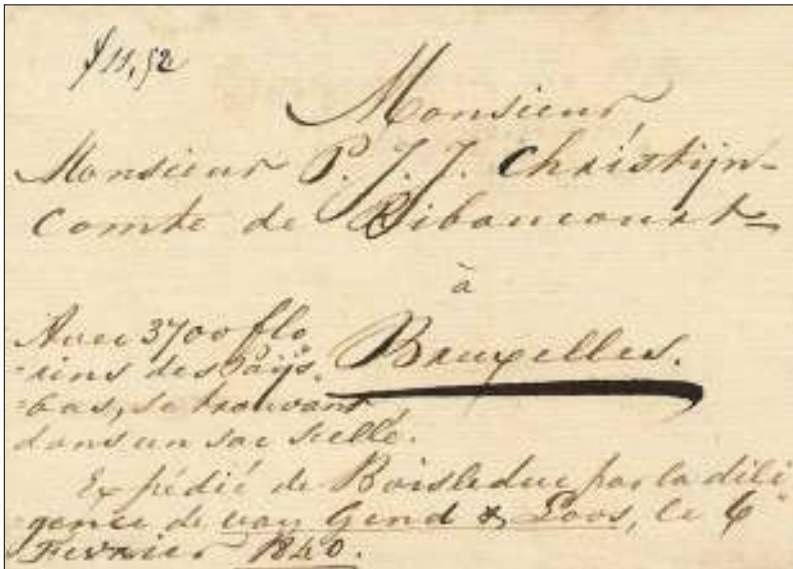 ƒ 11,52
Monsieur,
Monsieur P. J. J. Christijn-
Comte de Ribaucourt
à
Bruxelles.
Avec 3700 flo
-rins des Pays-
-bas, se trouvant
dans un sac scellé.
Expédié de Boisleduc par la dili
-gence de van Gend & Loos, le 6
Fevrier 1840.